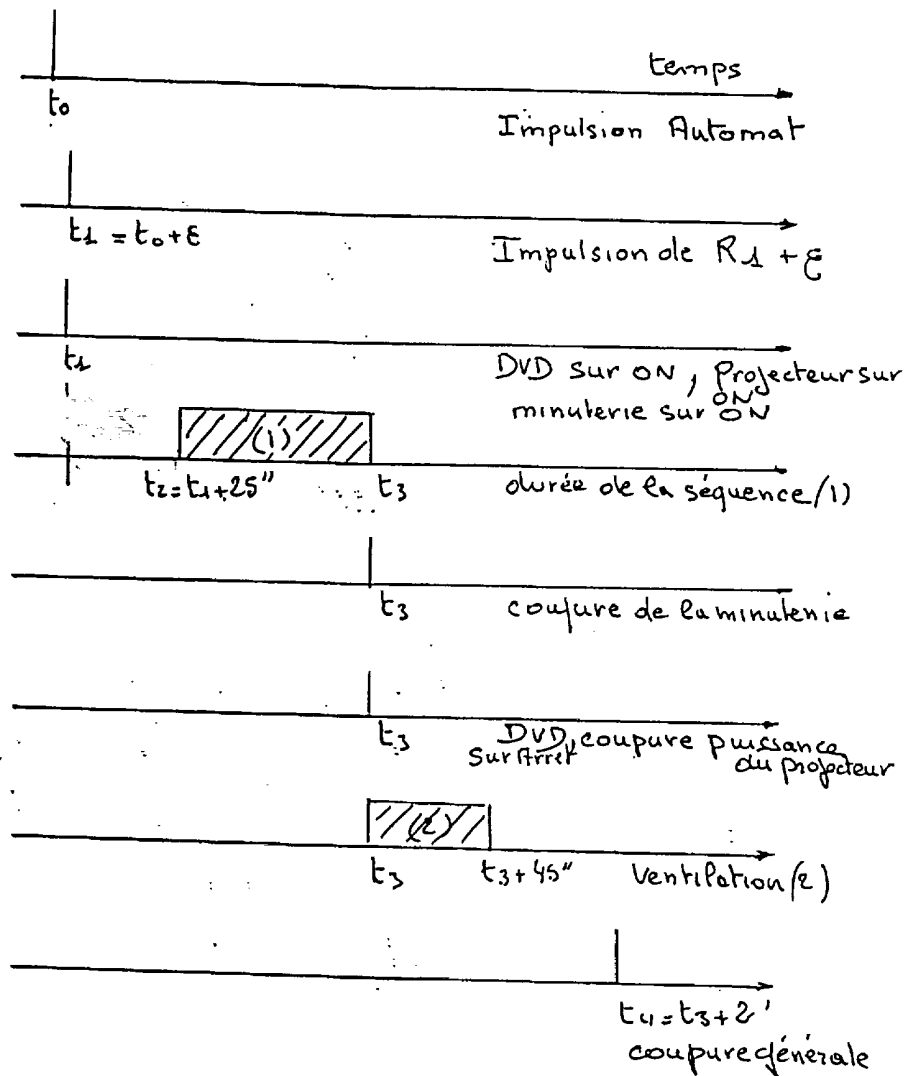 temps
to
Impulsion Automat
t1 = to+ε
Impulsion de R1 + ε
t1
DVD sur ON, Projecteur sur ON
minuterie sur ON
(1)
t2=t1+25"
t3
durée de la séquence (1)
t3
coupure de la minuterie
t3
DVD sur Arret, coupure puissance
du projecteur
(2)
t3
t3+45"
Ventilation (2)
t4=t3+2'
coupure générale